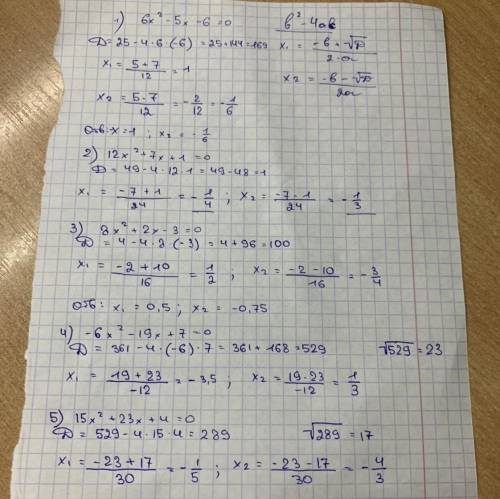 1) 6x² - 5x - 6 = 0 b² - 4ab
D = 25 - 4 · 6 · (-6) = 25 + 144 = 169 x₁ = (-b + √D)/(2·a)
x₁ = (5+7)/12 = 1 x₂ = (-b - √D)/(2a)
x₂ = (5-7)/12 = -2/12 = -1/6
Отв: x = 1 ; x₂ = -1/6
2) 12x² + 7x + 1 = 0
D = 49 - 4 · 12 · 1 = 49 - 48 = 1
x₁ = (-7+1)/24 = -1/4 ; x₂ = (-7-1)/24 = -1/3
3) 8x² + 2x - 3 = 0
D = 4 - 4 · 8 · (-3) = 4 + 96 = 100
x₁ = (-2+10)/16 = 1/2 ; x₂ = (-2-10)/16 = -3/4
Отв: x₁ = 0,5 ; x₂ = -0,75
4) -6x² - 19x + 7 = 0
D = 361 - 4 · (-6) · 7 = 361 + 168 = 529 √529 = 23
x₁ = (19+23)/-12 = -3,5 ; x₂ = (19-23)/-12 = 1/3
5) 15x² + 23x + 4 = 0
D = 529 - 4 · 15 · 4 = 289 √289 = 17
x₁ = (-23+17)/30 = -1/5 ; x₂ = (-23-17)/30 = -4/3